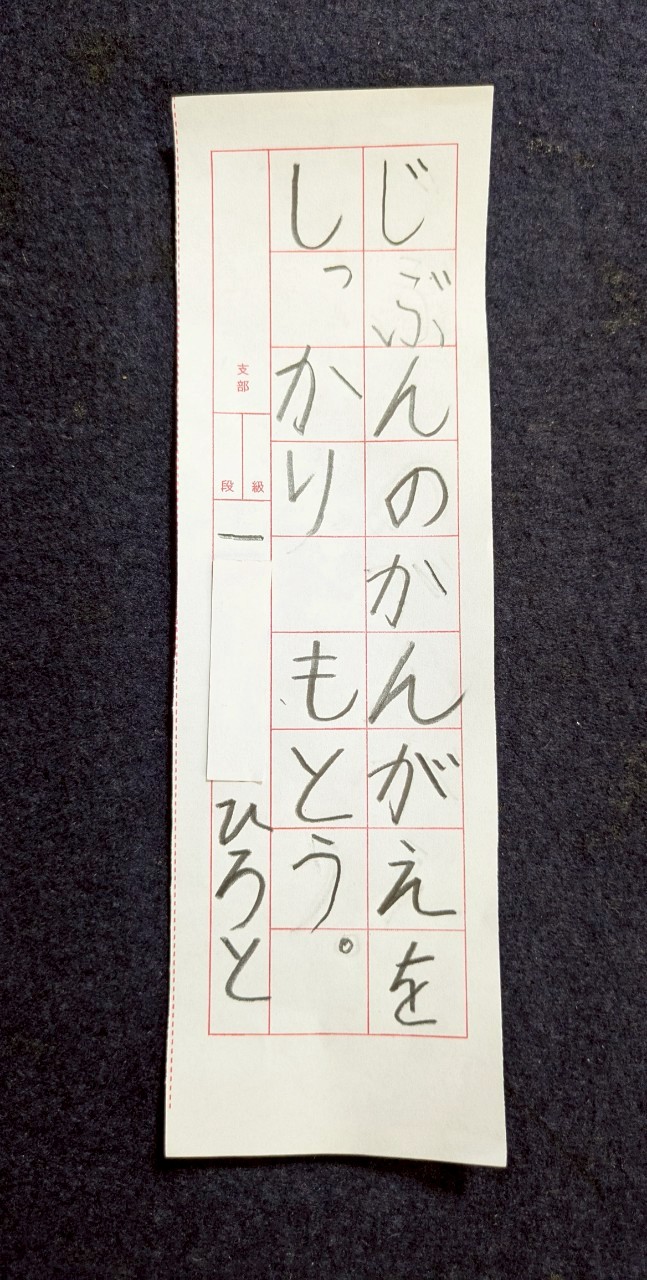 じぶんのかんがえを
しっかり　もとう。
支部
級
段
一
ひろと